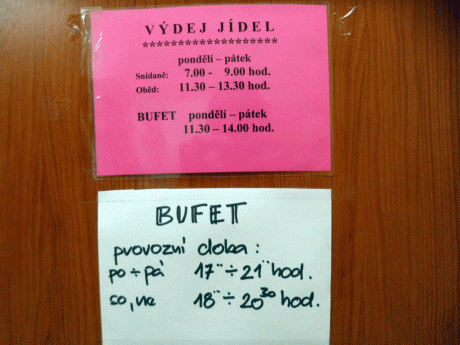 VÝDEJ JÍDEL
******************
pondělí – pátek
Snídaně: 7.00 - 9.00 hod.
Oběd: 11.30 – 13.30 hod.
BUFET pondělí – pátek
11.30 – 14.00 hod.
BUFET
provozní doba :
po ÷ pá 17¨ ÷ 21¨ hod.
so, ne 18¨ ÷ 20³⁰ hod.